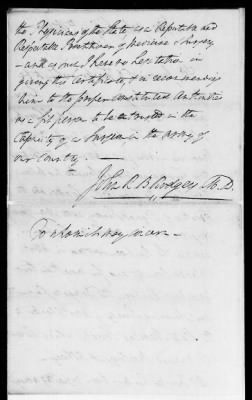 the Physicians of the State is a Reputable and
Reputable Practitioner of Medicine & Surgery
– and as such I have no hesitation in
giving this certificate & in recommending
him to the proper constituted authorities
as a fit person to be entrusted in the
Capacity of a Surgeon in the army of
our country. —
John R B Rodgers M.D.
To whom it may concern –